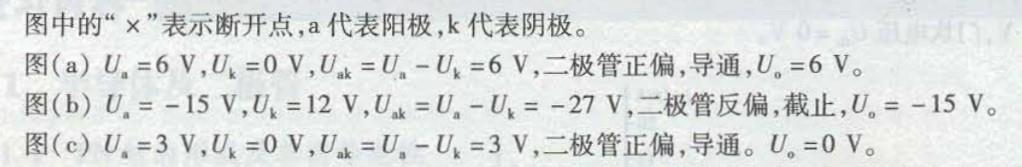 图中的“×”表示断开点,a代表阳极,k代表阴极。
图(a) Uₐ=6 V,Uₖ=0 V,Uₐₖ=Uₐ-Uₖ=6 V,二极管正偏,导通,Uₒ=6 V。
图(b) Uₐ=-15 V,Uₖ=12 V,Uₐₖ=Uₐ-Uₖ=-27 V,二极管反偏,截止,Uₒ=-15 V。
图(c) Uₐ=3 V,Uₖ=0 V,Uₐₖ=Uₐ-Uₖ=3 V,二极管正偏,导通。Uₒ=0 V。